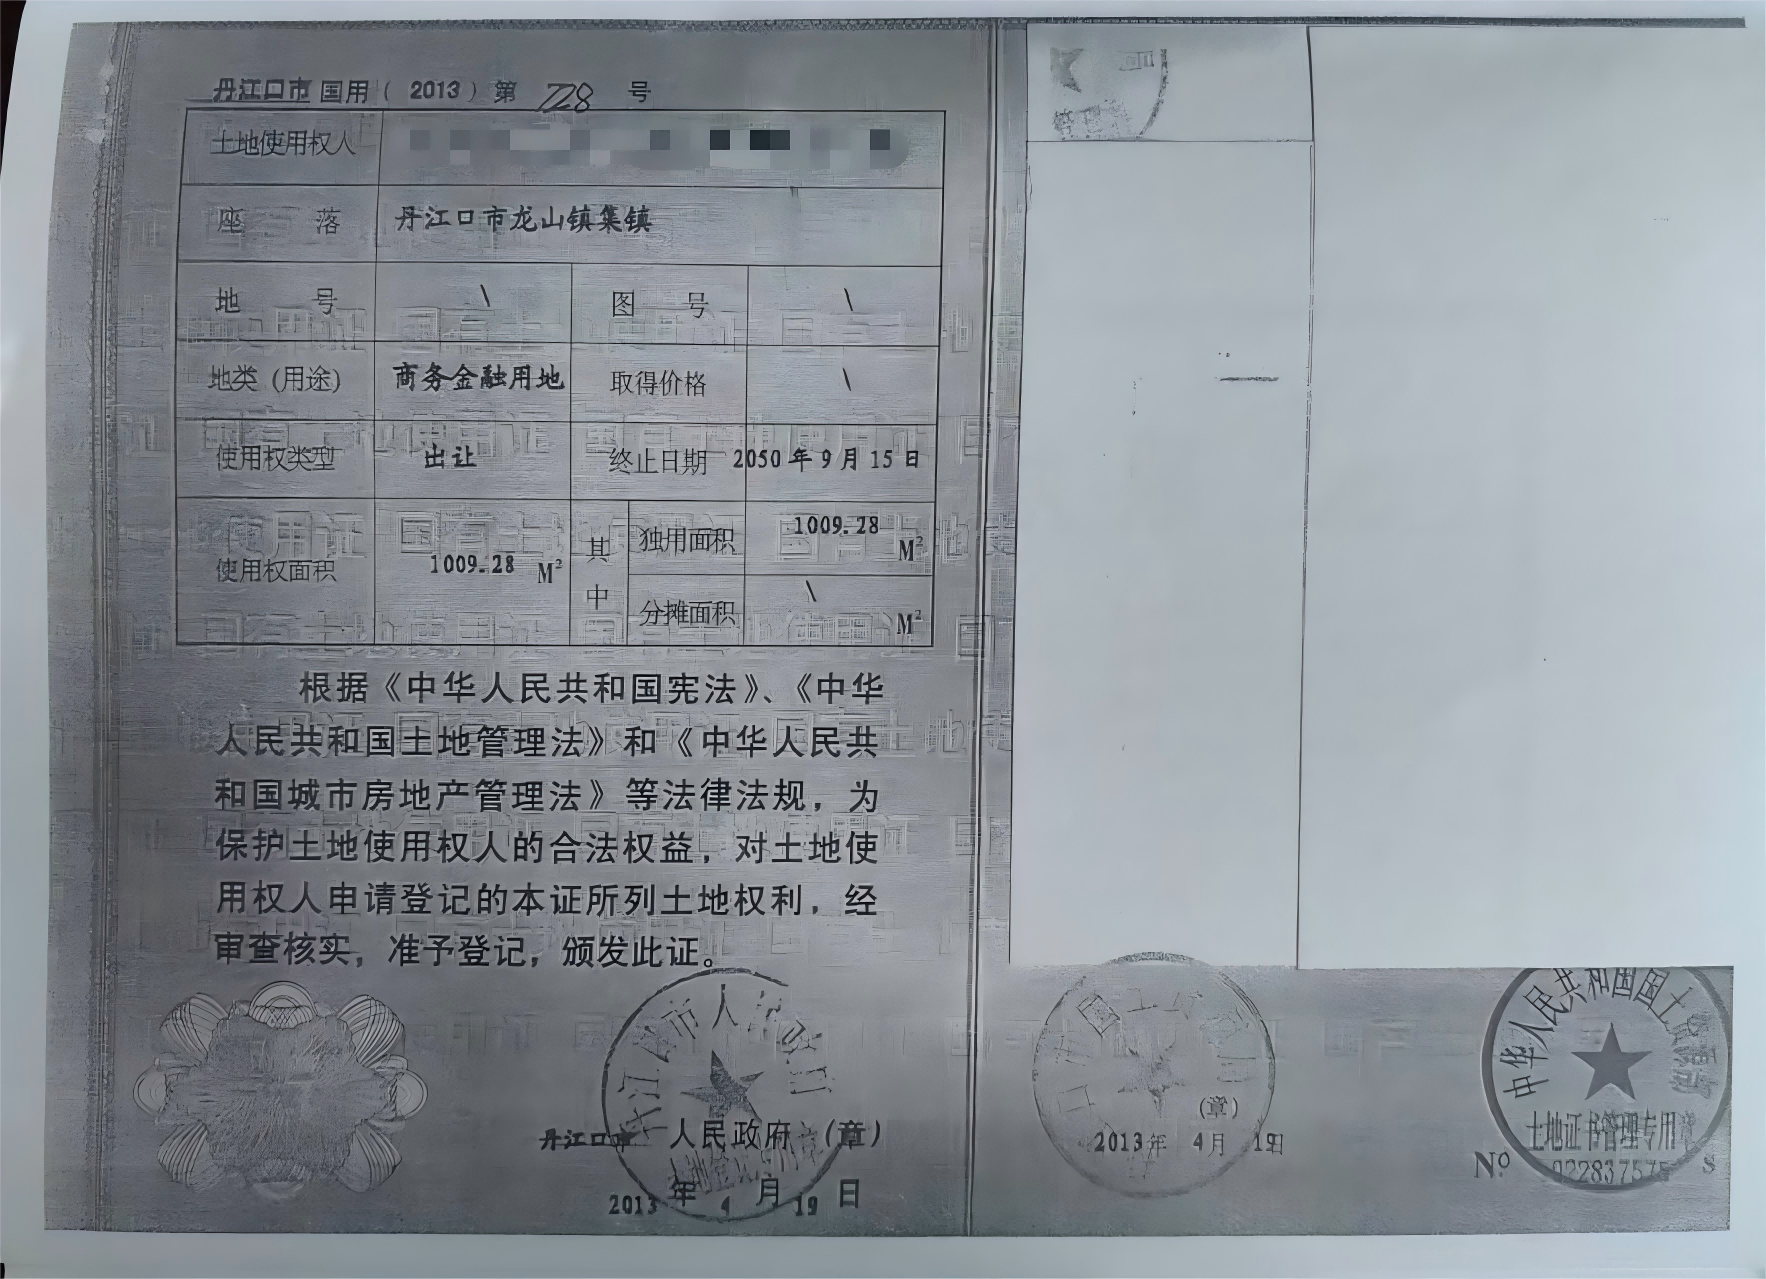 丹江口市国用（2013）第728号
土地使用权人
座落 丹江口市龙山镇集镇
地号 \ 图号 \
地类（用途） 商务金融用地 取得价格 \
使用权类型 出让 终止日期 2050年9月15日
使用权面积 1009.28 M² 其中 独用面积 1009.28 M²
分摊面积 \ M²
根据《中华人民共和国宪法》、《中华
人民共和国土地管理法》和《中华人民共
和国城市房地产管理法》等法律法规，为
保护土地使用权人的合法权益，对土地使
用权人申请登记的本证所列土地权利，经
审查核实，准予登记，颁发此证。
丹江口市人民政府（章）
2013年4月19日
（章）
2013年4月19日
中华人民共和国国土资源部
土地证书管理专用章
Nº